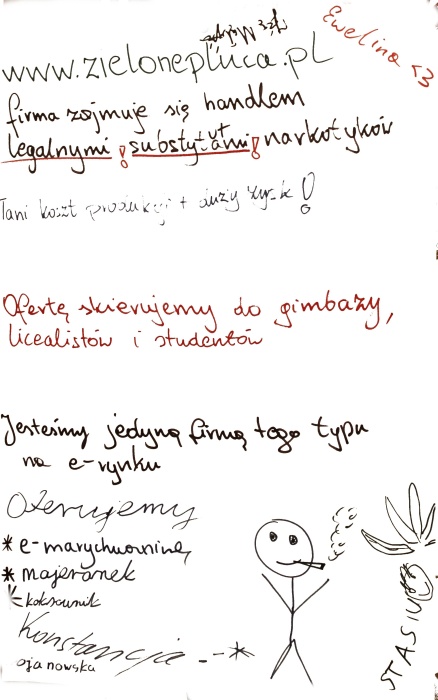 Ewelina <3
www.zielonepluca.pl
firma zajmuje się handlem
legalnymi! substytutami! narkotyków
Tani koszt produkcji + duży zysk!
Ofertę skierujemy do gimbazy,
licealistów i studentów
Jesteśmy jedyną firmą tego typu
na e-rynku
Oferujemy
* e-marychuaninę
* majeranek
koksownik
Konstancja
ojanowska
STASIU